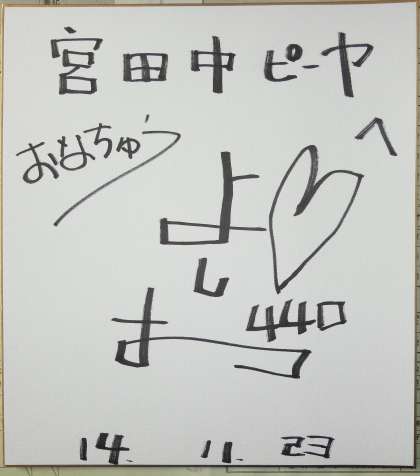 宮田中ピーヤ
へ
おなちゅう
よし
お
440
14. 11. 23